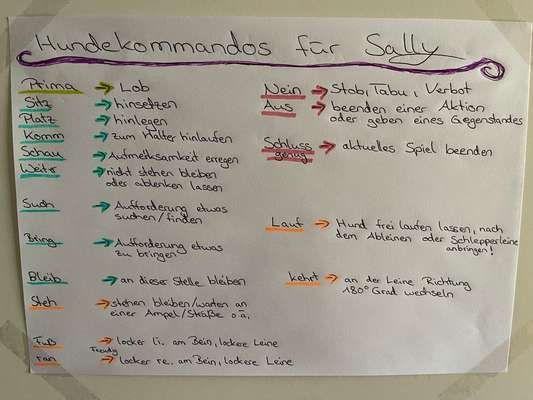 Hundekommandos für Sally
Prima → Lob
Sitz → hinsetzen
Platz → hinlegen
Komm → zum Halter hinlaufen
Schau → Aufmerksamkeit erregen
Weiter → nicht stehen bleiben
oder ablenken lassen
Such → Aufforderung etwas
suchen/finden
Bring → Aufforderung etwas
zu bringen
Bleib → an dieser Stelle bleiben
Steh → stehen bleiben/warten an
einer Ampel/Straße o.ä.
Fuß → locker li. am Bein, lockere Leine
ran → locker re. am Bein, lockere Leine
Nein → Stob, Tabu, Verbot
Aus → beenden einer Aktion
oder geben eines Gegenstandes
Schluss → aktuelles Spiel beenden
genug
Lauf → Hund frei laufen lassen, nach
dem Ableinen oder Schlepperleine
anbringen!
kehrt → an der Leine Richtung
180° Grad wechseln